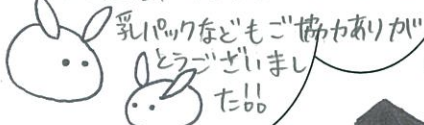 乳パックなどもご協力ありが
とうございまし
た!!